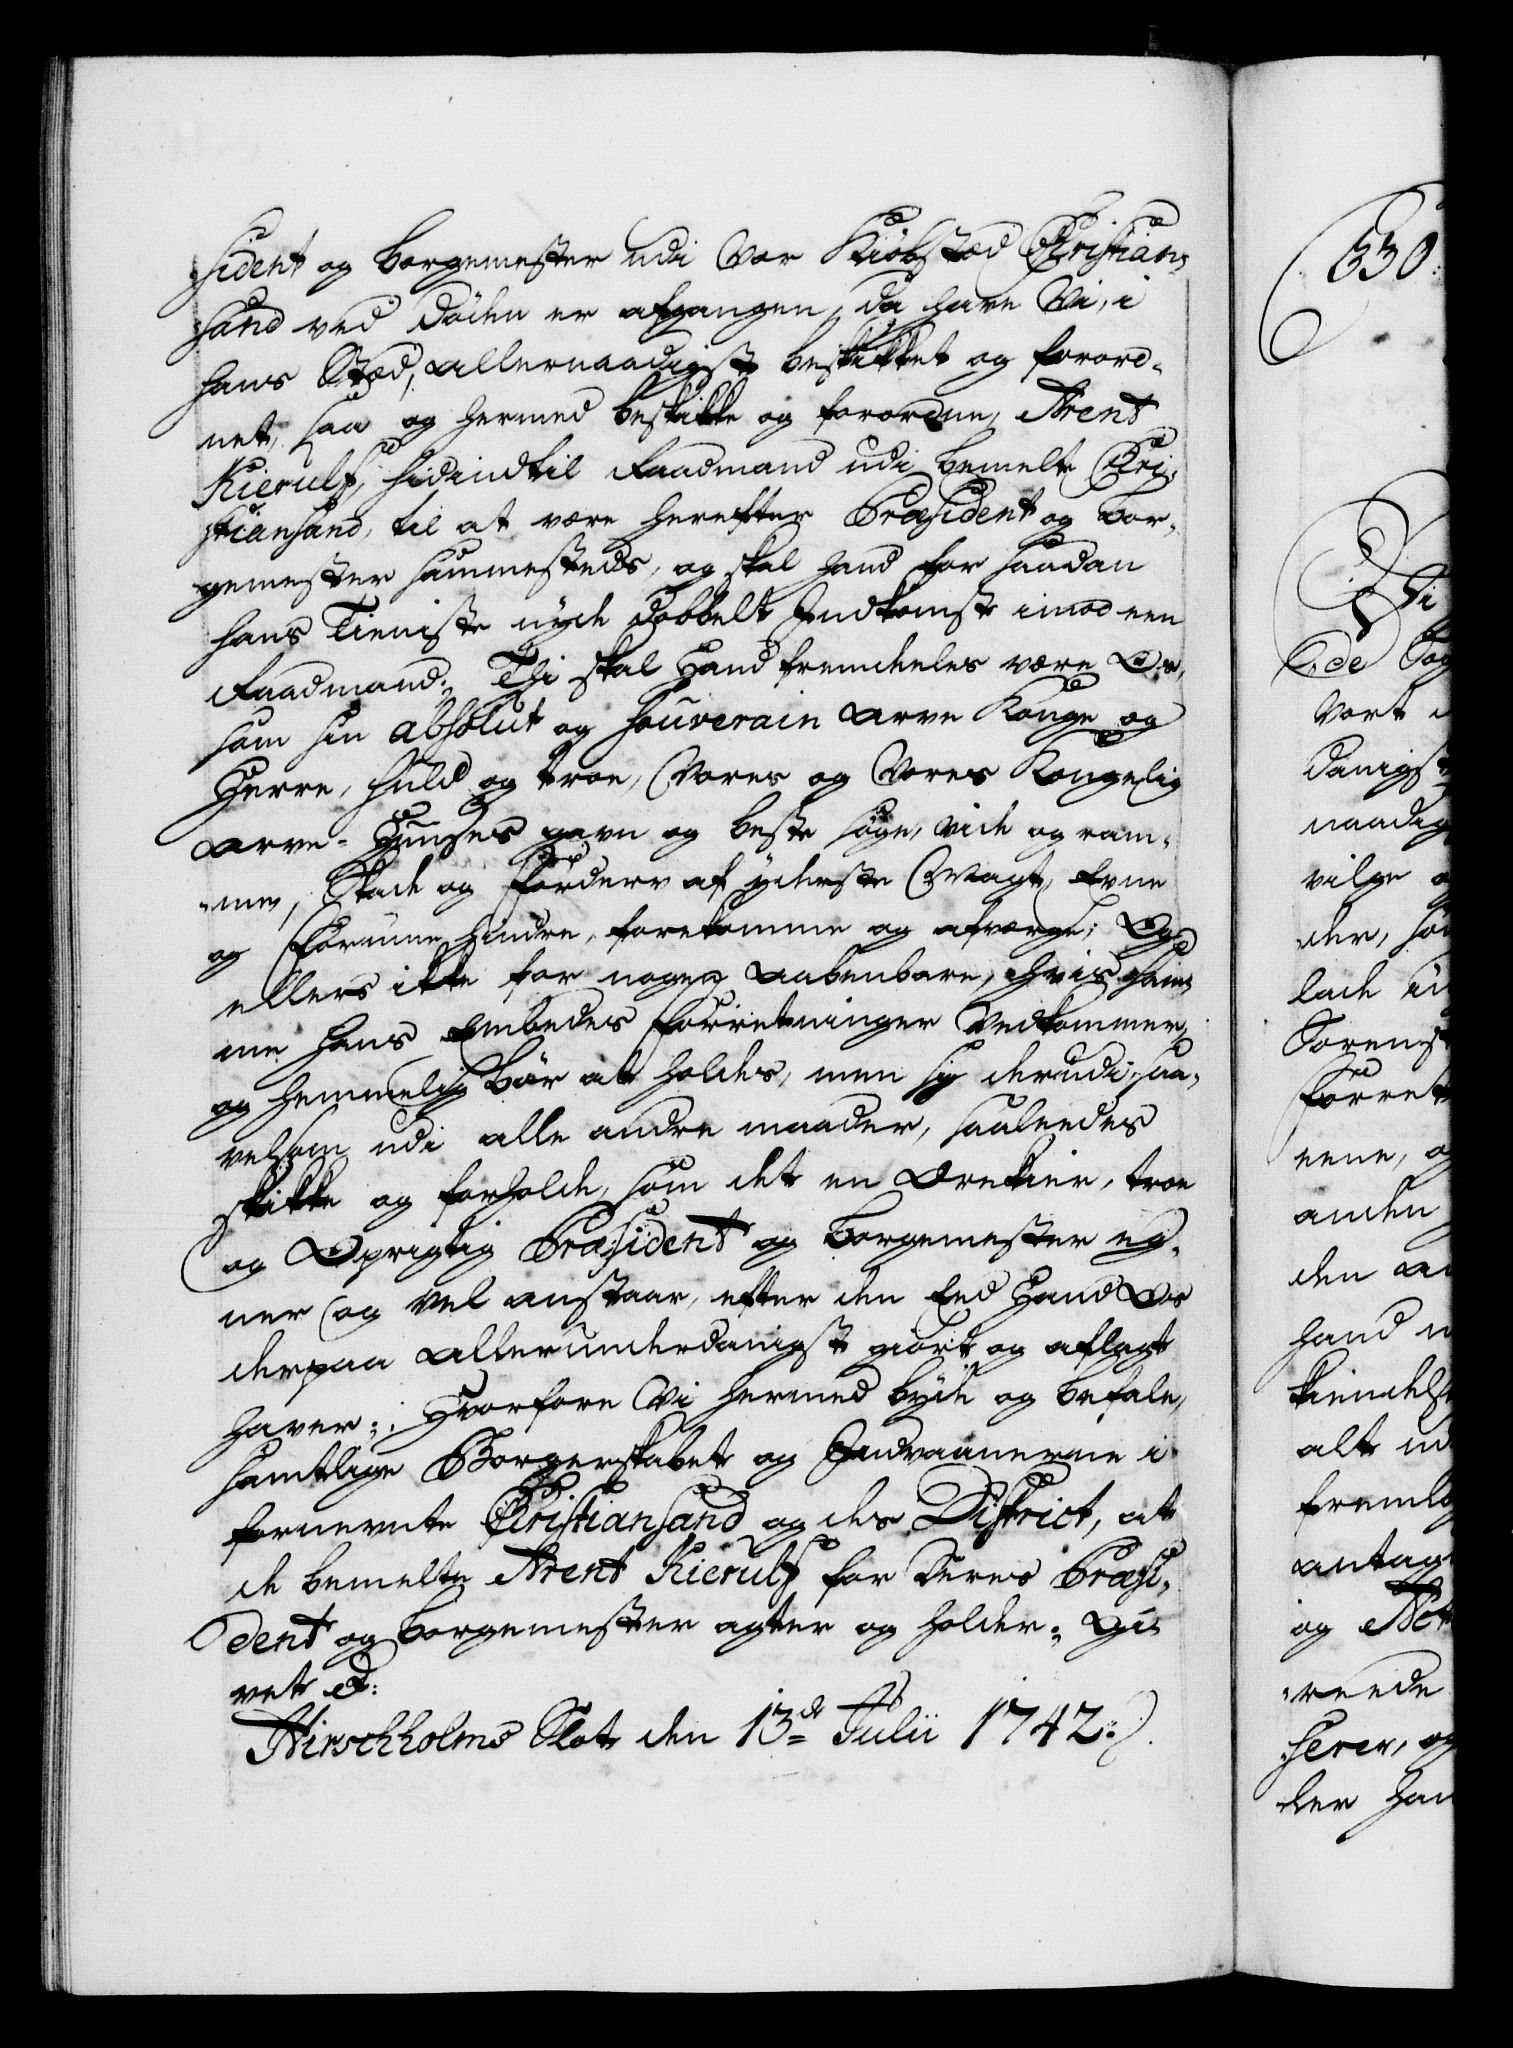 sident og borgemester udi Vor Kiöbstæd Christian-
sand ved döden er afgangen, da have Vi, i
hans Stæd, allernaadigst beskikket og forord-
net, saa og hermed beskikke og forordne, Arent
Kierulf, hidindtil Raadmand udi bemelte Chri-
stiansand, til at være herefter Præsident og bor-
gemester sammesteds, og skal hand for saadan
hans Tieniste nyde dobbelt Indkomst imod een
Raadmand: Thi skal Hand fremdeles være Os,
som sin absolut og souverain arve Konge og
Herre, huld og troe, Vores og Vores Kongelig
arve-Huuses gavn og beste søge, vide og ram-
me, Skade og forderv af yderste Magt, Evne
og formue hindre, forekomme og afværge; Og
ellers ikke for nogen aabenbare, hvis ham
me hans Embedes forretninger Vedkommer,
og hemmelig bør at holdes, men sig derudi, saa-
velsom udi alle andre maader, saaleedes
skikke og forholde, som det en Ærekier, troe
og Oprigtig Præsident og borgemester eg-
ner og vel anstaar, efter den Eed Hand Os
derpaa allerunderdanigst giort og aflagt
haver: Hvorfore Vi hermed byde og befale,
samtlige Borgerskabet og Indvaanerne i
fornevnte Christiansand og des District, at
de bemelte Arent Kierulf for Deres Præsi-
dent og borgemester agter og holder: Gi-
vet &:
Hirschholms Slot den 13de Julii 1742:
330:
Vi
de Sog
Vort
danigst
naadig
vilge
der, som
lade
Sorensk
forret
eene, og
anden
den an
hand
kiendelse
alt
fremlæ
antag
og Not
reede
serer, og
der han